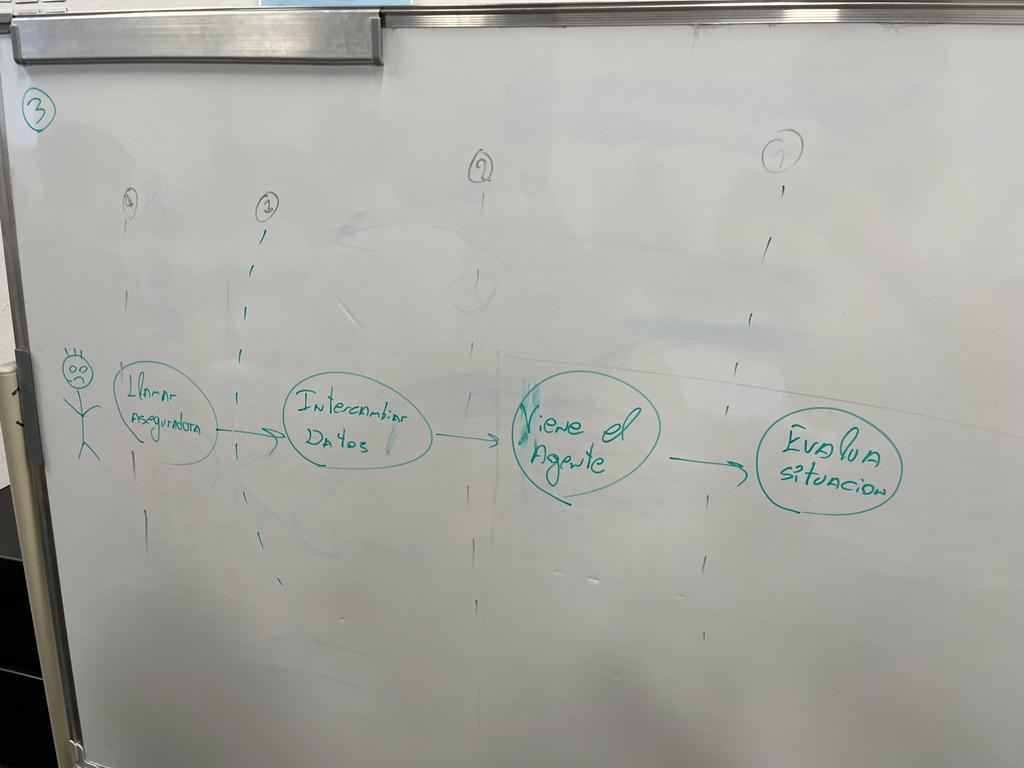 3
2
1
Llamar
Aseguradora
Intercambiar
Datos
Viene el
Agente
Evalua
situacion